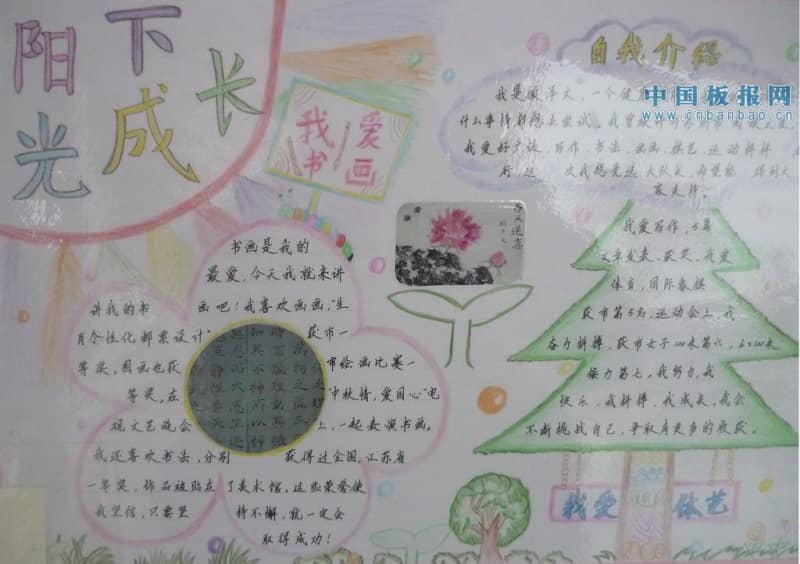 阳下
光成长
我爱
书画
自我介绍
中国板报网
www.cnbanbao.cn
我是 泽文,一个健
什么事情都想去尝试。我曾
我爱好广泛,写作、书法、画画、棋艺、运动样样
行。这 次我想竞选大队长,希望能 得到大
家支持。
书画是我的
最爱,今天我就来讲
讲我的书 画吧!我喜欢画画,"生
肖个性化邮票设计" 获市一
等奖,国画也获 市绘画比赛一
等奖,在 "中秋情,爱国心"电
视文艺晚会 上,一起表演书画。
我还喜欢书法,分别 获得过全国、江苏省
一等奖,作品被贴在了美术馆,这些荣誉使
我坚信,只要坚 持不懈,就一定会
取得成功!
我爱写作,5篇
文章发表、获奖,我爱
体育,国际象棋
获市第5名,运动会上,我
奋力拼搏,获市女子100米第六,4×100米
接力第七。我努力,我
快乐,我拼搏,我成长,我会
不断挑战自己,争取有更多的收获。
我爱 体艺